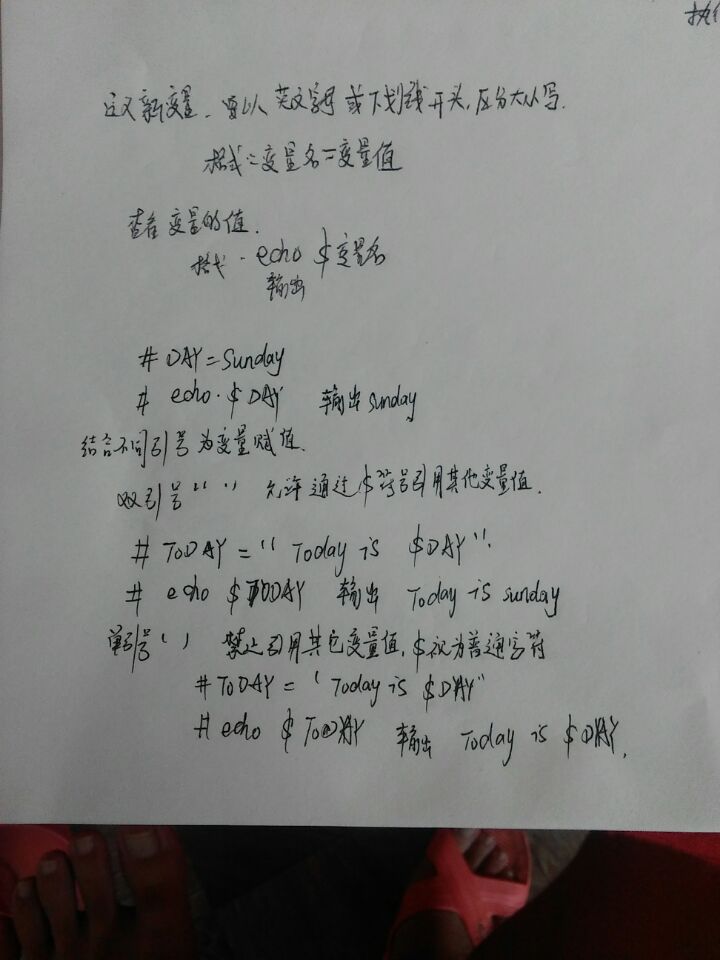 执行
定义新变量、要以英文字母或下划线开头,区分大小写.
格式:变量名=变量值
查看变量的值.
格式. echo $变量名
输出
# DAY=Sunday
# echo. $DAY 输出 sunday
结合不同引号为变量赋值.
双引号“ ” 允许通过$符号引用其他变量值.
# TODAY=“ Today is $DAY”.
# echo $TODAY 输出 Today is sunday
单引号‘ ’ 禁止引用其它变量值,$视为普通字符
# TODAY = ‘ Today is $DAY”
# echo $ TODAY 输出 Today is $DAY.